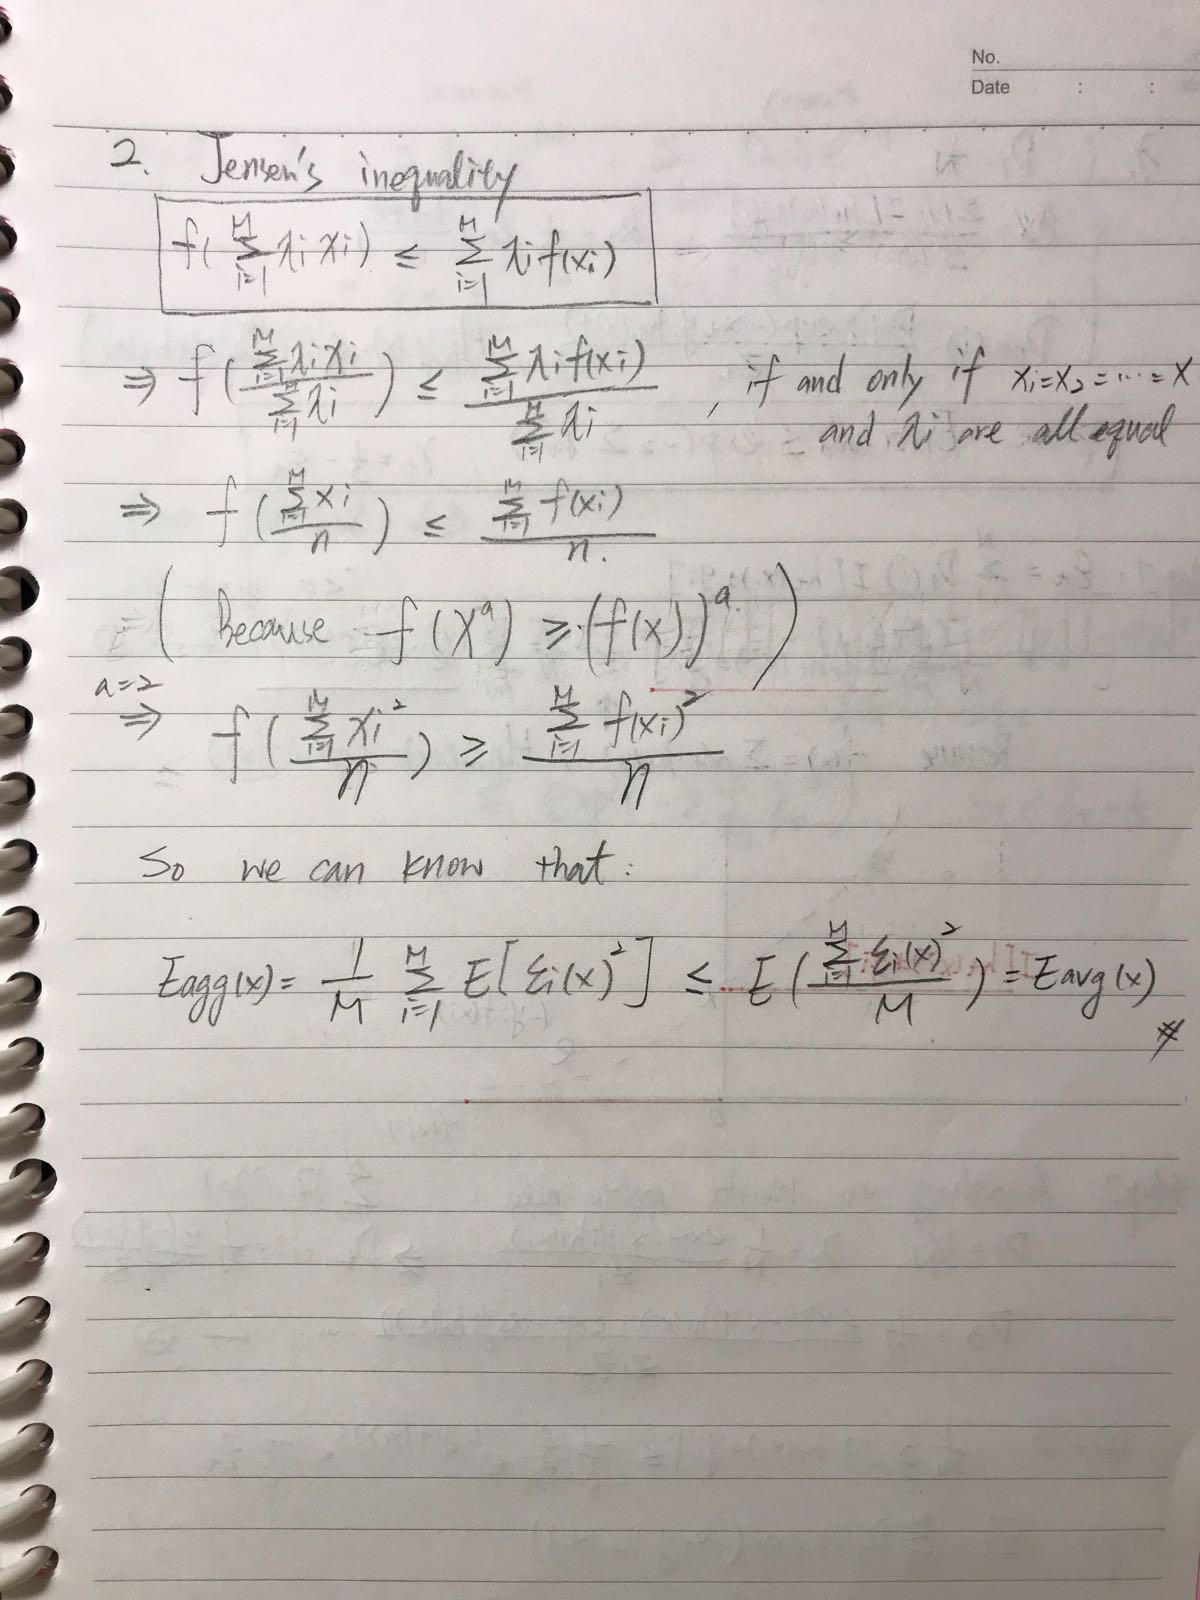 No.
Date : :
2. Jensen's inequality
f( M∑i=1 λi xi ) ≤ M∑i=1 λi f(xi)
⇒ f( (M∑i=1 λi xi) / (M∑i=1 λi) ) ≤ (M∑i=1 λi f(xi)) / (M∑i=1 λi) , if and only if x1=x2=...=X
and λi are all equal
⇒ f( (M∑i=1 xi) / n ) ≤ (M∑i=1 f(xi)) / n.
( Because f(X^a) ≥ (f(x))^a )
a=2
⇒ f( (M∑i=1 xi²) / n ) ≥ (M∑i=1 f(xi)²) / n
So we can know that:
Eagg(x) = 1/M M∑i=1 E[ Σi(x)² ] ≤ E( (M∑i=1 Σi(x)²) / M ) = Eavg(x) #